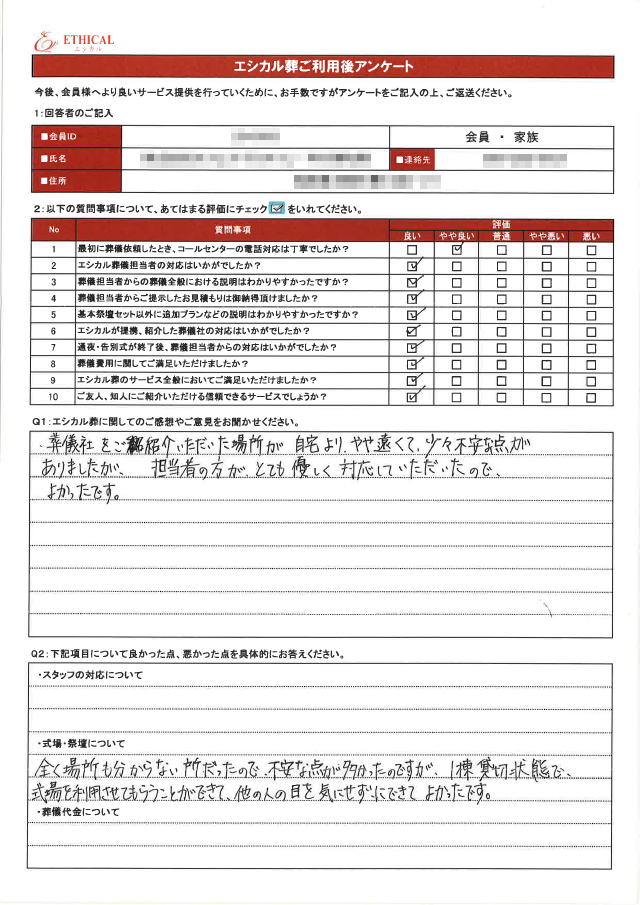 ETHICAL
エシカル
エシカル葬ご利用後アンケート
今後、会員様へより良いサービス提供を行っていくために、お手数ですがアンケートをご記入の上、ご返送ください。
1:回答者のご記入
■会員ID 会員 ・ 家族
■氏名 ■連絡先
■住所
2:以下の質問事項について、あてはまる評価にチェック をいれてください。
No 質問事項 評価
良い やや良い 普通 やや悪い 悪い
1 最初に葬儀依頼したとき、コールセンターの電話対応は丁寧でしたか？
2 エシカル葬儀担当者の対応はいかがでしたか？
3 葬儀担当者からの葬儀全般における説明はわかりやすかったですか？
4 葬儀担当者からご提示したお見積もりは御納得頂けましたか？
5 基本祭壇セット以外に追加プランなどの説明はわかりやすかったですか？
6 エシカルが提携、紹介した葬儀社の対応はいかがでしたか？
7 通夜・告別式が終了後、葬儀担当者からの対応はいかがでしたか？
8 葬儀費用に関してご満足いただけましたか？
9 エシカル葬のサービス全般においてご満足いただけましたか？
10 ご友人、知人にご紹介いただける信頼できるサービスでしょうか？
Q1:エシカル葬に関してのご感想やご意見をお聞かせください。
・葬儀社をご紹介いただいた場所が自宅より、やや遠くて、少々不安な点が
ありましたが、担当者の方が、とても優しく対応していただいたので、
よかったです。
Q2:下記項目について良かった点、悪かった点を具体的にお答えください。
・スタッフの対応について
・式場・祭壇について
全く場所も分からない所だったので、不安な点が多かったのですが、1棟貸切状態で、
式場を利用させてもらうことができて、他の人の目を気にせずにできてよかったです。
・葬儀代金について